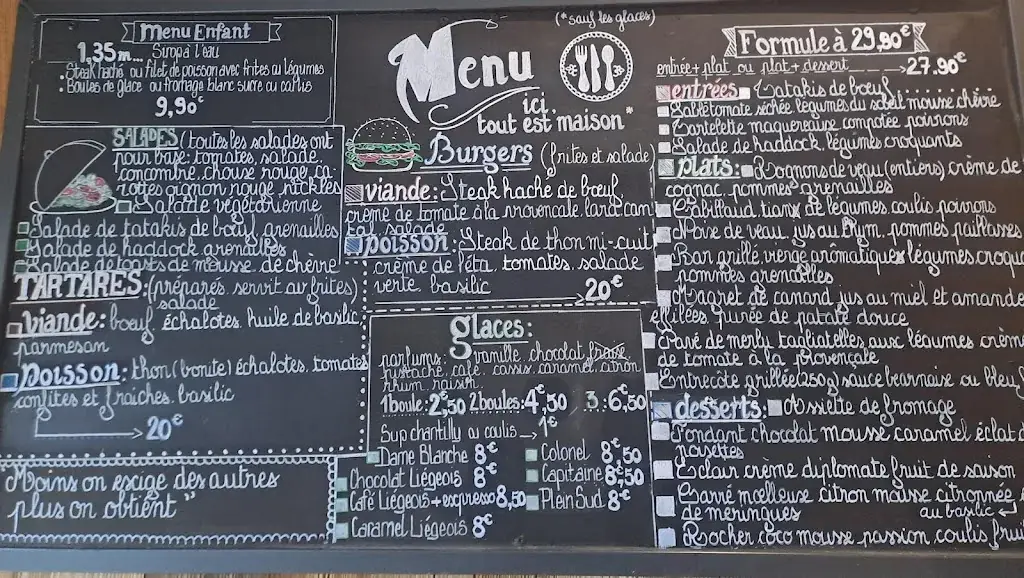 Menu Enfant
1,35m... Sirop à l'eau
. Steak haché ou filet de poisson avec frites ou légumes
. Boules de glace ou fromage blanc sucre ou coulis
9,90€
SALADES (toutes les salades ont
pour base: tomates, salade,
concombre, choux rouge, ca
rottes oignon rouge, pickles
Salade végétarienne
Salade de tatakis de bœuf, grenailles
Salade de haddock grenailles
Salade de toasts de mousse de chèvre
TARTARES: (préparés, servit av frites)
salade
Viande: bœuf, échalotes, huile de basilic
parmesan
Poisson: thon (bonite) échalotes, tomates
confites et fraîches, basilic
20€
Moins on exige des autres
plus on obtient"
(*sauf les glaces)
Menu
ici,
tout est maison*
Burgers (frites et salade)
viande: Steak haché de bœuf,
crème de tomate à la provençale, lard, can
tal, salade
Poisson: Steak de thon mi-cuit
crème de féta, tomates, salade
verte, basilic
20€
glaces:
parfums: vanille, chocolat, fraise,
pistache, café, cassis, caramel, citron
rhum raisin
1 boule: 2€,50 2 boules: 4€,50 3: 6€,50
Sup chantilly ou coulis 1€
Dame Blanche 8€
Chocolat Liégeois 8€
Café Liégeois + expresso 8,50
Caramel Liégeois 8€
Colonel 8€,50
Capitaine 8€,50
Plein Sud 8€
Formule à 29,90€
entrée + plat ou plat + dessert 27.90€
entrées: Tatakis de bœuf
Sablé tomate séchée légumes du soleil mousse chèvre
Tartelette maquereaux compotée poivrons
Salade de haddock, légumes croquants
plats: Rognons de veau (entiers) crème de
cognac, pommes grenailles
Cabillaud, tian de légumes, coulis poivrons
Noix de veau, jus au thym, pommes paillasses
Bar grillé, vierge aromatique, légumes croqua
pommes grenailles
Magret de canard, jus au miel et amande
effilées, purée de patate douce
Pavé de merlu, tagliatelles aux légumes crèm
de tomate à la provençale
Entrecôte grillée (250g) sauce bearnaise ou bleu,
desserts: Assiette de fromage
Fondant chocolat mousse caramel éclat d
noisettes
Eclair crème diplomate fruit de saison
Carré moelleux citron mousse citronnée
de meringues au basilic
Rocher coco mousse passion, coulis frui